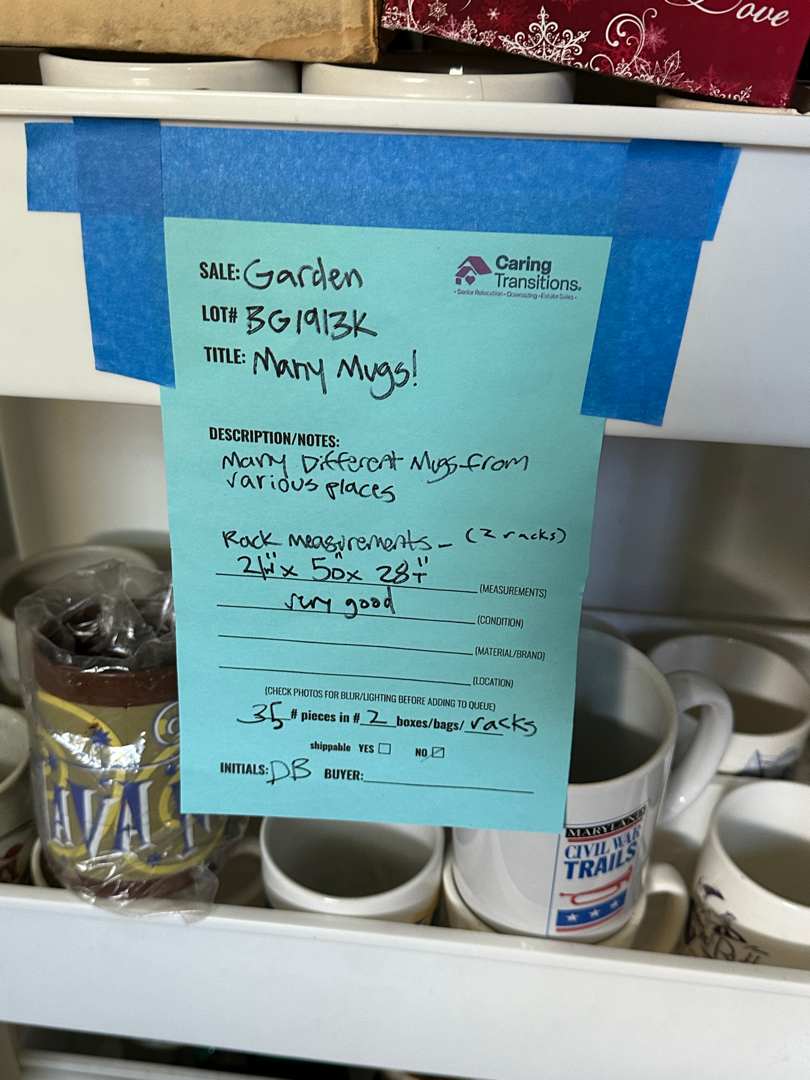 Love
Caring
Transitions.
• Senior Relocation • Downsizing • Estate Sales •
SALE: Garden
LOT# BG1913K
TITLE: Many Mugs!
DESCRIPTION/NOTES:
Many Different Mugs from
various places
Rack measurements - (2 racks)
(MEASUREMENTS)
very good (CONDITION)
(MATERIAL/BRAND)
(LOCATION)
(CHECK PHOTOS FOR BLUR/LIGHTING BEFORE ADDING TO QUEUE)
35 # pieces in # 2 boxes/bags/ racks
shippable YES NO
INITIALS: DB BUYER:
AVA
MARYLAND
CIVIL WAR
TRAILS